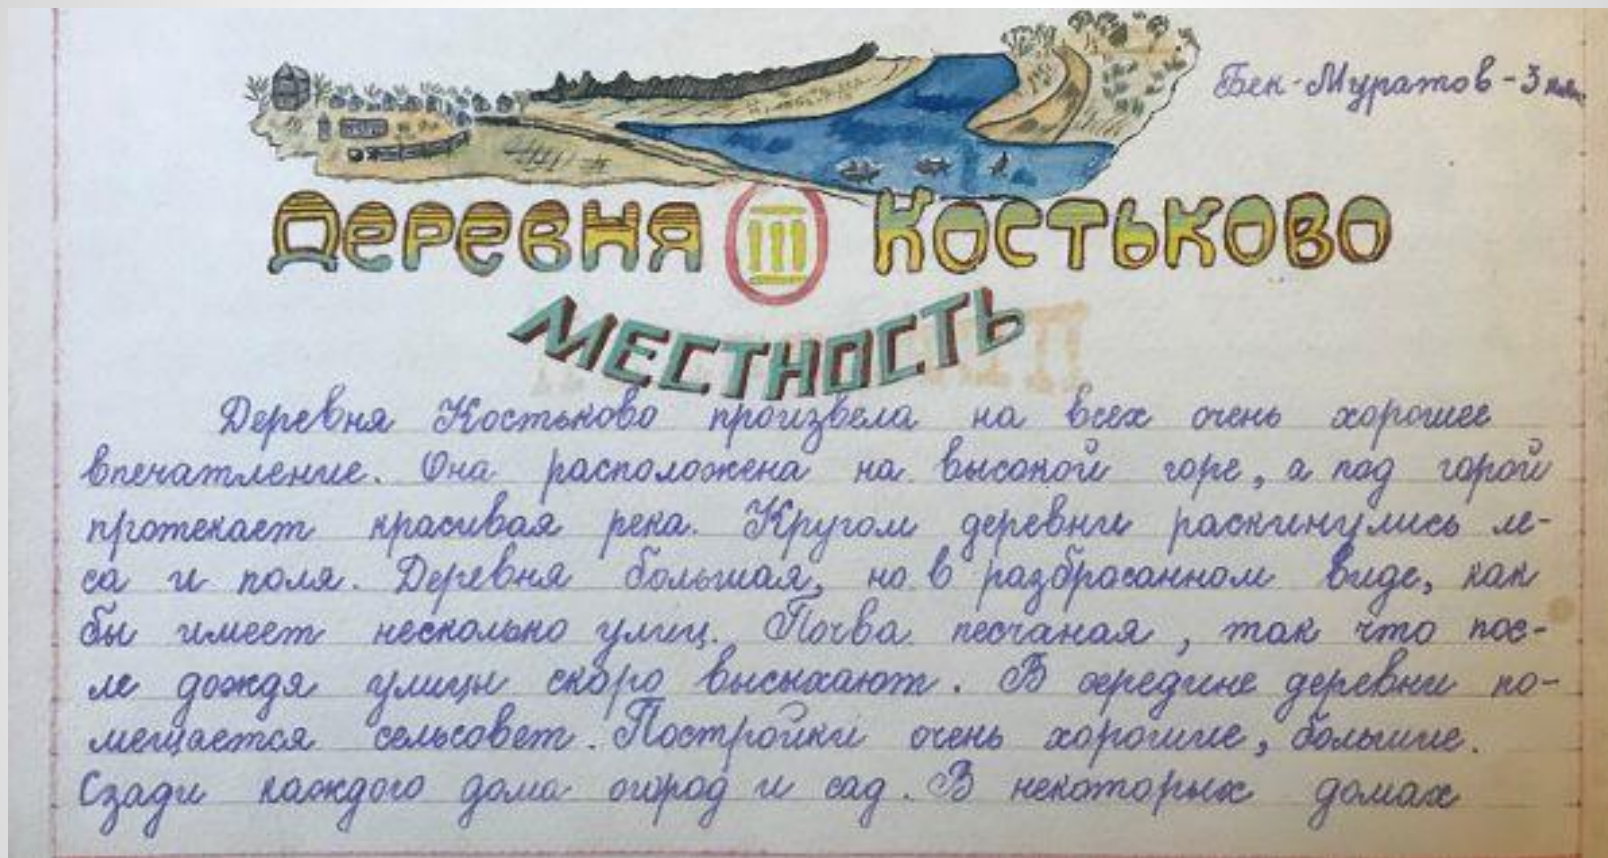 Бек-Муратов-3
Деревня III Костьково
МЕСТНОСТЬ
Деревня Костьково произвела на всех очень хорошее
впечатление. Она расположена на высокой горе, а под горой
протекает красивая река. Кругом деревни раскинулись ле-
са и поля. Деревня большая, но в разбросанном виде, как
бы имеет несколько улиц. Почва песчаная, так что пос-
ле дождя улицы скоро высыхают. В середине деревни по-
мещается сельсовет. Постройки очень хорошие, большие.
Сзади каждого дома огород и сад. В некоторых домах